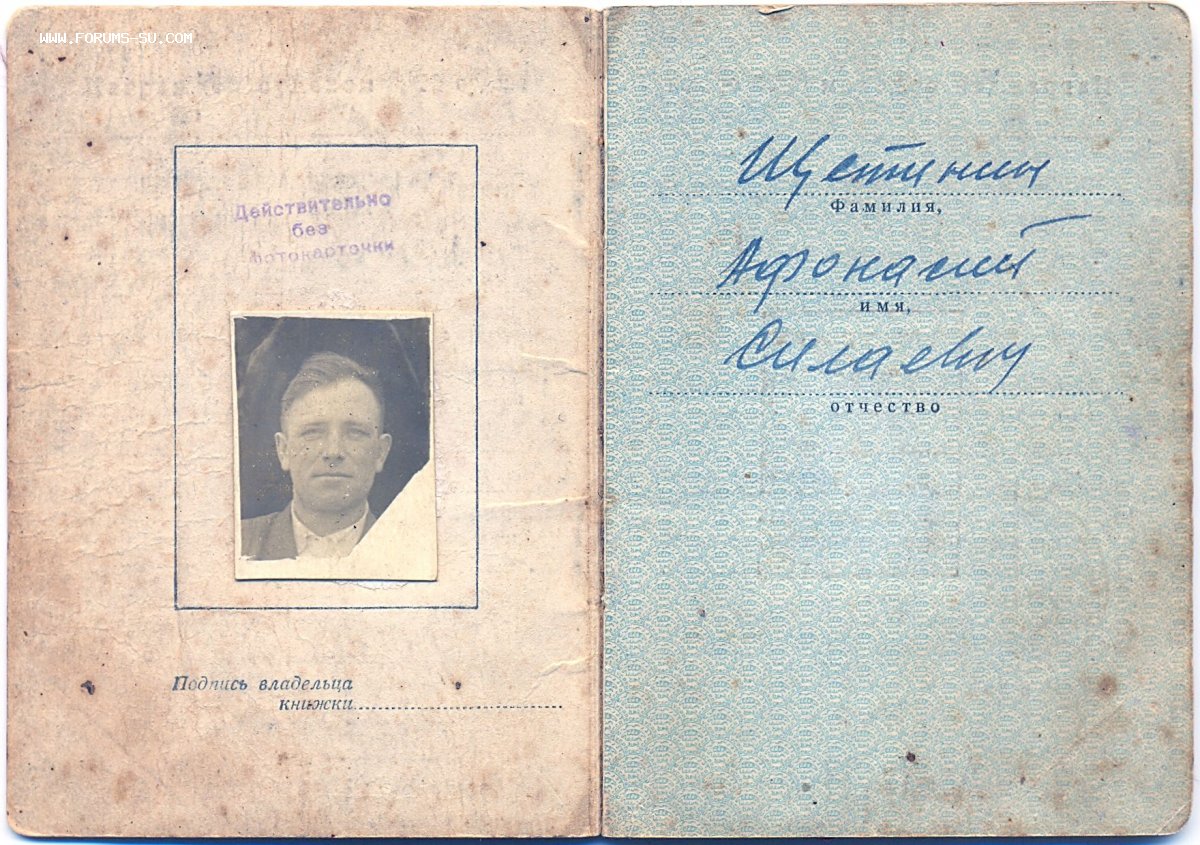 WWW.FORUMS-SU.COM
Действительно
без
фотокарточки
Подпись владельца
книжки
Щетинин
Фамилия,
Афонасий
имя,
Силаевич
отчество